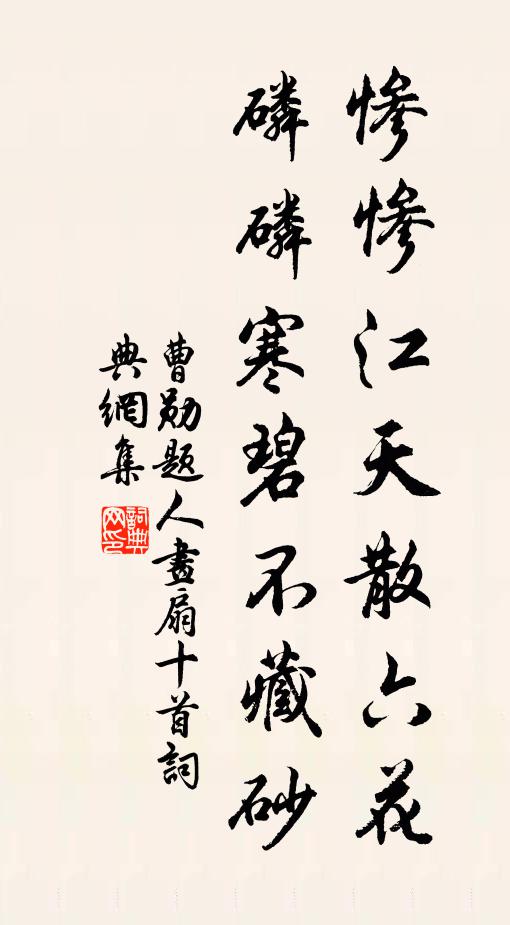 惨惨江天散六花
磷磷寒碧不藏砂
曹勋题人畫扇十首詞
典網集
詞典网印